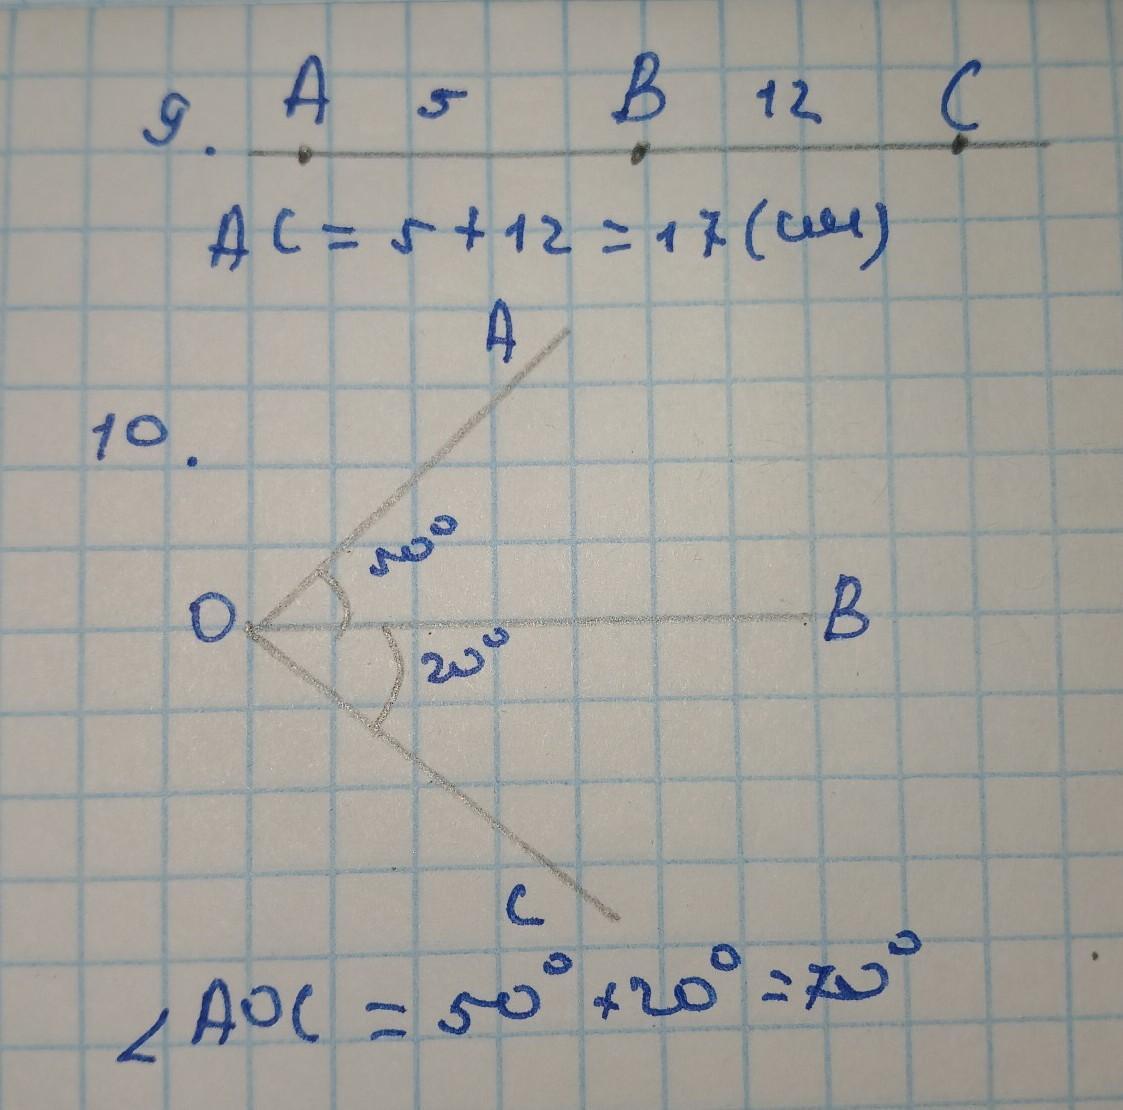 9. A 5 B 12 C
AC = 5 + 12 = 17 (см)
A
10.
50°
O B
20°
C
∠AOC = 50° + 20° = 70°